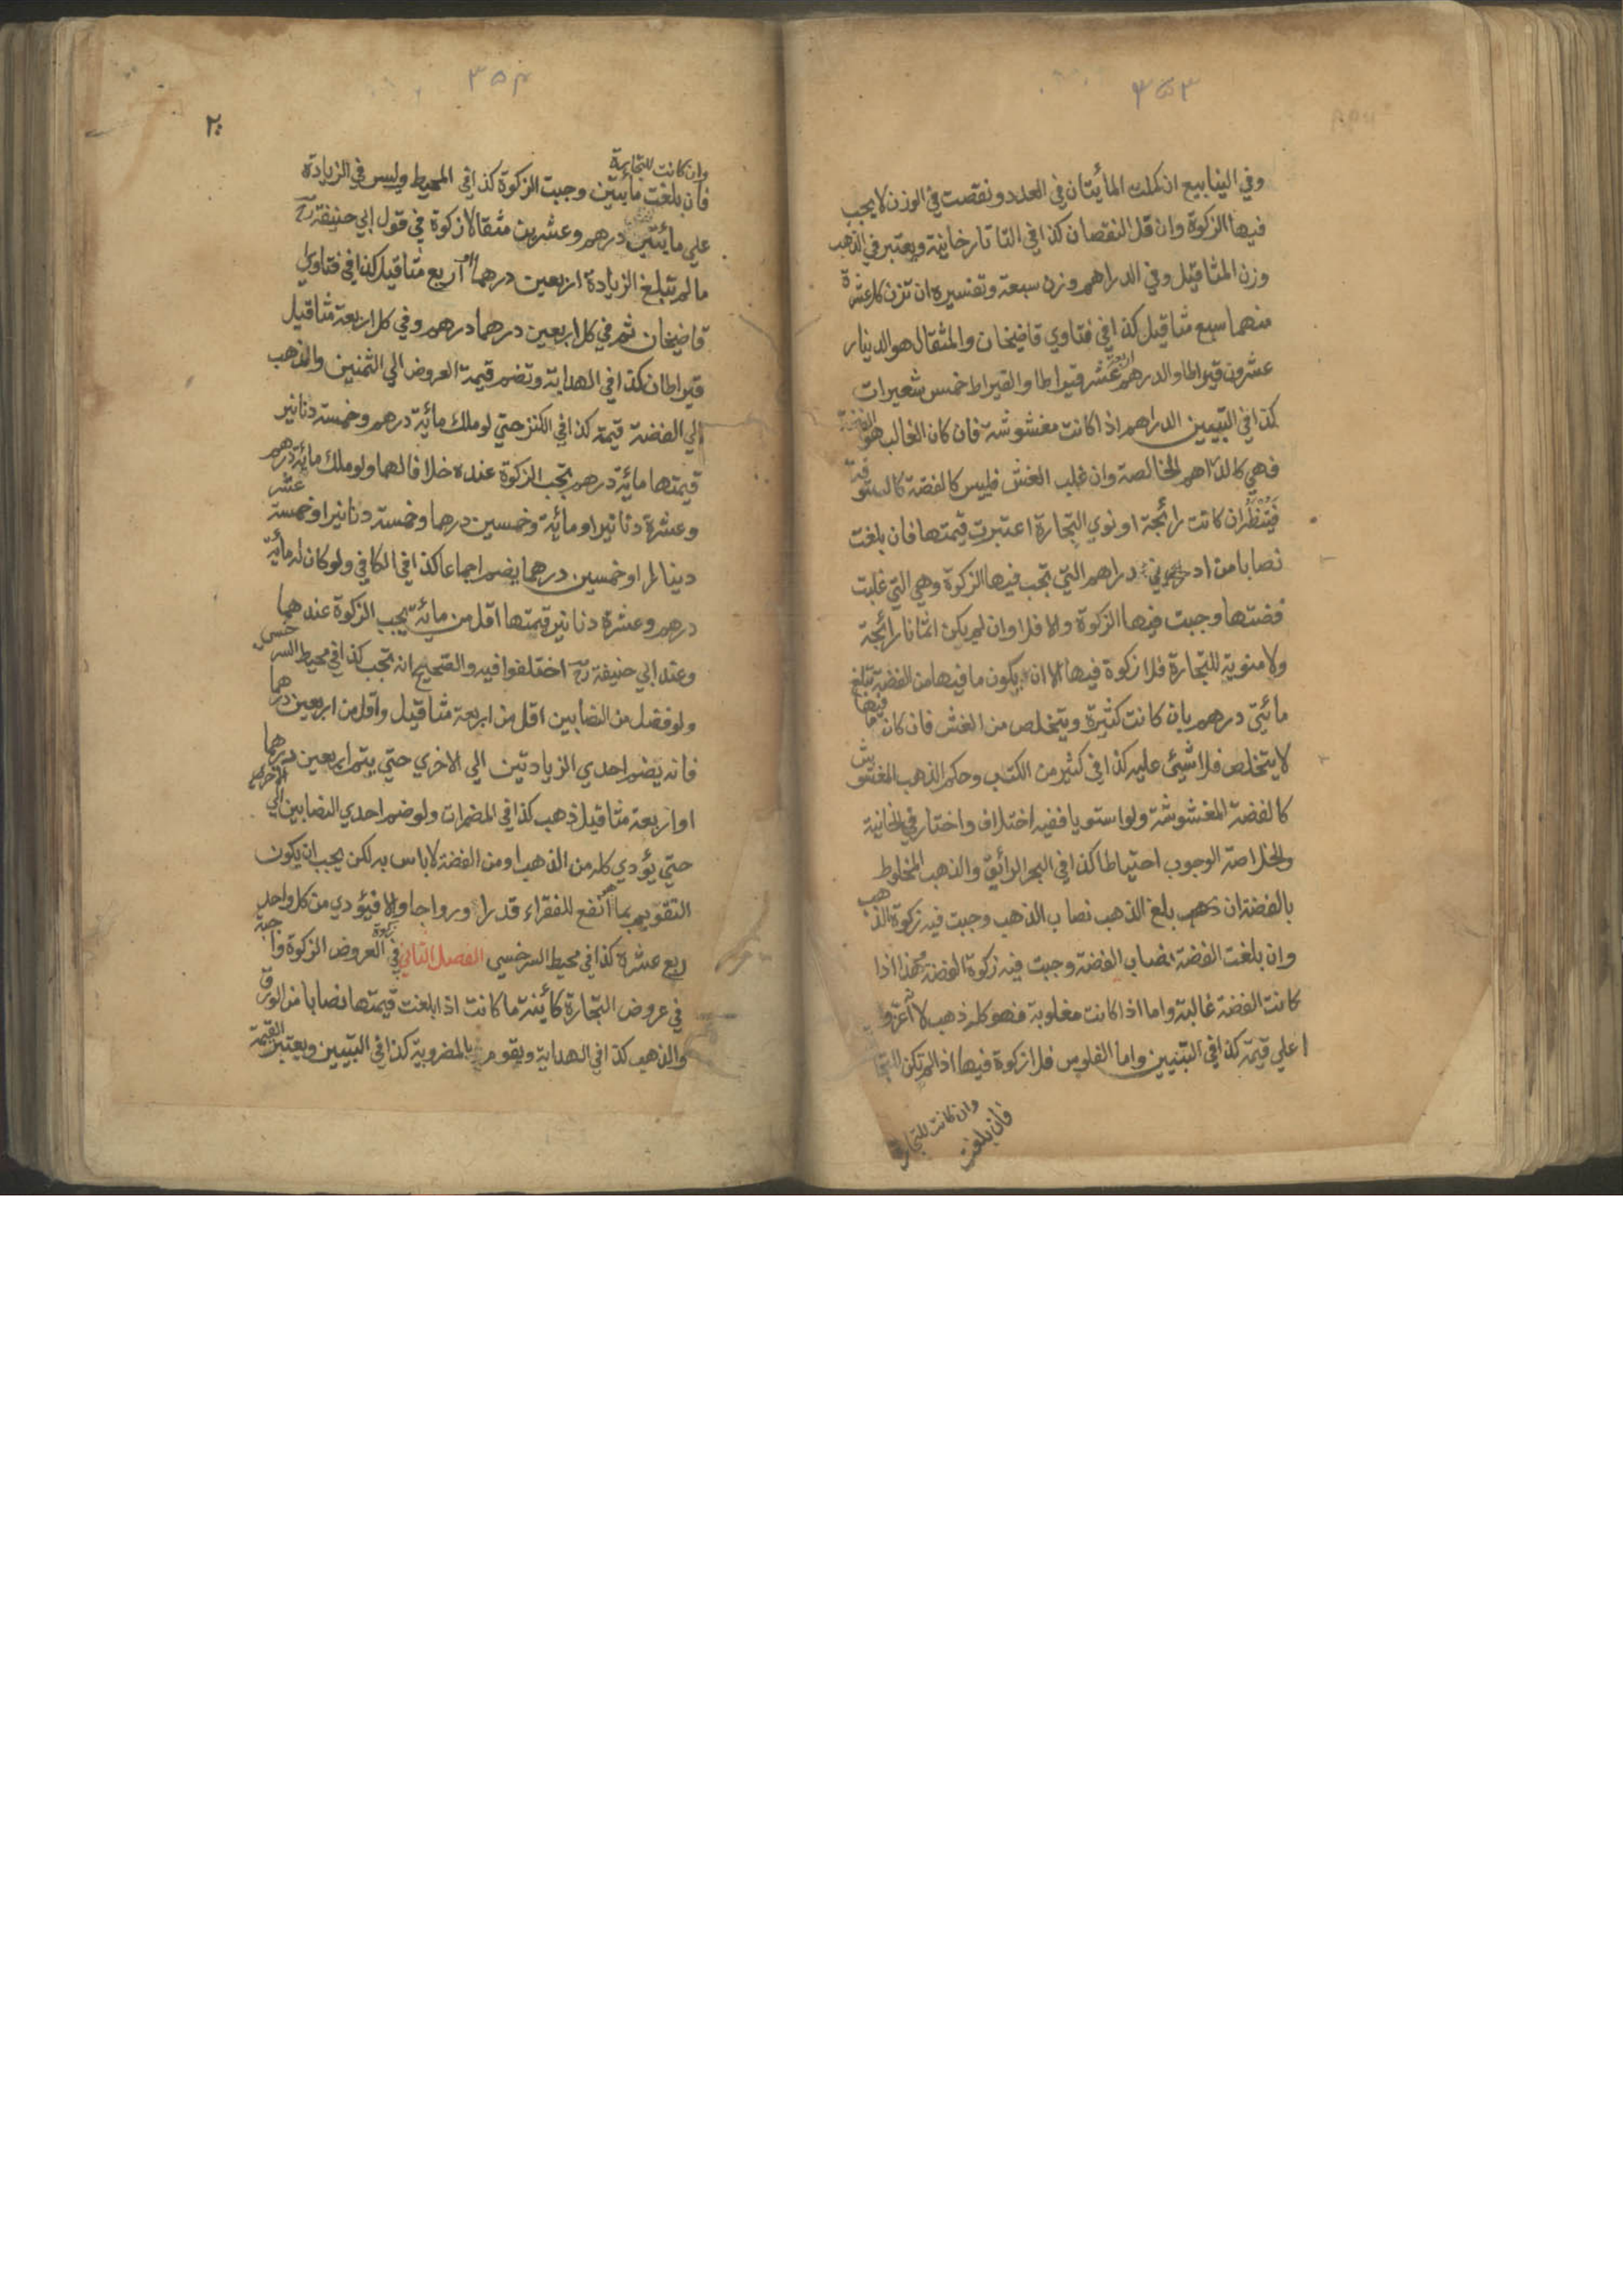 ٣٥٣
وفي الينابيع ان كملت المأيتان في العدد ونقصت في الوزن لا يجب
فيها الزكوة وان قل النقصان كذا في التاتارخانية ويعتبر في الذهب
وزن المثاقيل وفي الدراهم وزن سبعة وتفسيره ان تزن كل عشرة
منهما سبع مثاقيل كذا في فتاوي قاضيخان والمثقال هو الدينار
عشرون قيراطا والدرهم اربعة عشر قيراطا والقيراط خمس شعيرات
كذا في التبيين الدراهم اذا كانت مغشوشة فان كان الغالب هو الفضة
فهي كالدراهم الخالصة وان غلب الغش فليس كالفضة كالستوقة
فيتنظر ان كانت رائجة او نوي التجارة اعتبرت قيمتها فان بلغت
نصابا من ادني دراهم التي تجب فيها الزكوة وهي التي غلبت
فضتها وجبت فيها الزكوة والا فلا وان لم يكن اثمانا رائجة
ولا منوية للتجارة فلا زكوة فيها الا ان يكون ما فيها من الفضة تبلغ
مائتي درهم بان كانت كثيرة ويتخلص من الغش فان كان ما فيها
لا يتخلص فلا شيئ عليه كذا في كثير من الكتب وحكم الذهب المغشوش
كالفضة المغشوشة ولو استويا ففيه اختلاف واختار في الخانية
والخلاصة الوجوب احتياطا كذا في البحر الرائق والذهب المخلوط
بالفضة ان بلغ الذهب نصاب الذهب وجبت فيه زكوة الذهب
وان بلغت الفضة نصاب الفضة وجبت فيه زكوة الفضة وهذا اذا
كانت الفضة غالبة واما اذا كانت مغلوبة فهو كله ذهب لانه اعز و
اعلي قيمة كذا في التبيين واما الفلوس فلا زكوة فيها اذا لم تكن للتجا
وان كانت للتجارة
فان بلغت
٣٥٤
٢٠
وان كانت للتجارة
فان بلغت مأيتين وجبت الزكوة كذا في المحيط وليس في الزيادة
علي مائتي درهم وعشرين مثقالا زكوة في قول ابي حنيفة رح
ما لم تبلغ الزيادة اربعين درهما او اربع مثاقيل كذا في فتاوي
قاضيخان ثم في كل اربعين درهما درهم وفي كل اربعة مثاقيل
قيراطان كذا في الهداية وتضم قيمة العروض الي الثمنين والذهب
الي الفضة قيمة كذا في الكنز حتي لو ملك مائة درهم وخمسة دنانير
قيمتها مائة درهم تجب الزكوة عنده خلافا لهما ولو ملك مائة درهم
وعشرة دنانير او مائة وخمسين درهما وخمسة دنانير او خمسة عشر
دينارا او خمسين درهما يضم اجماعا كذا في الكافي ولو كان له مائة
درهم وعشرة دنانير قيمتها اقل من مائة يجب الزكوة عندهما
وعند ابي حنيفة رح اختلفوا فيه والصحيح انه تجب كذا في محيط السرخسي
ولو فضل من النصابين اقل من اربعة مثاقيل واقل من اربعين درهما
فانه يضم احدي الزيادتين الي الاخري حتي يتم اربعين درهما
او اربعة مثاقيل ذهب كذا في المضمرات ولو ضم احدي النصابين الي الاخري
حتي يؤدي كله من الذهب او من الفضة لا باس به لكن يجب ان يكون
التقويم بما هو انفع للفقراء قدرا ورواجا والا فيؤدي من كل واحد
ربع عشره كذا في محيط السرخسي الفصل الثاني في زكوة العروض الزكوة واجبة
في عروض التجارة كائنة ما كانت اذا بلغت قيمتها نصابا من الورق
والذهب كذا في الهداية ويقوم بالمضروبة كذا في التبيين ويعتبر القيمة